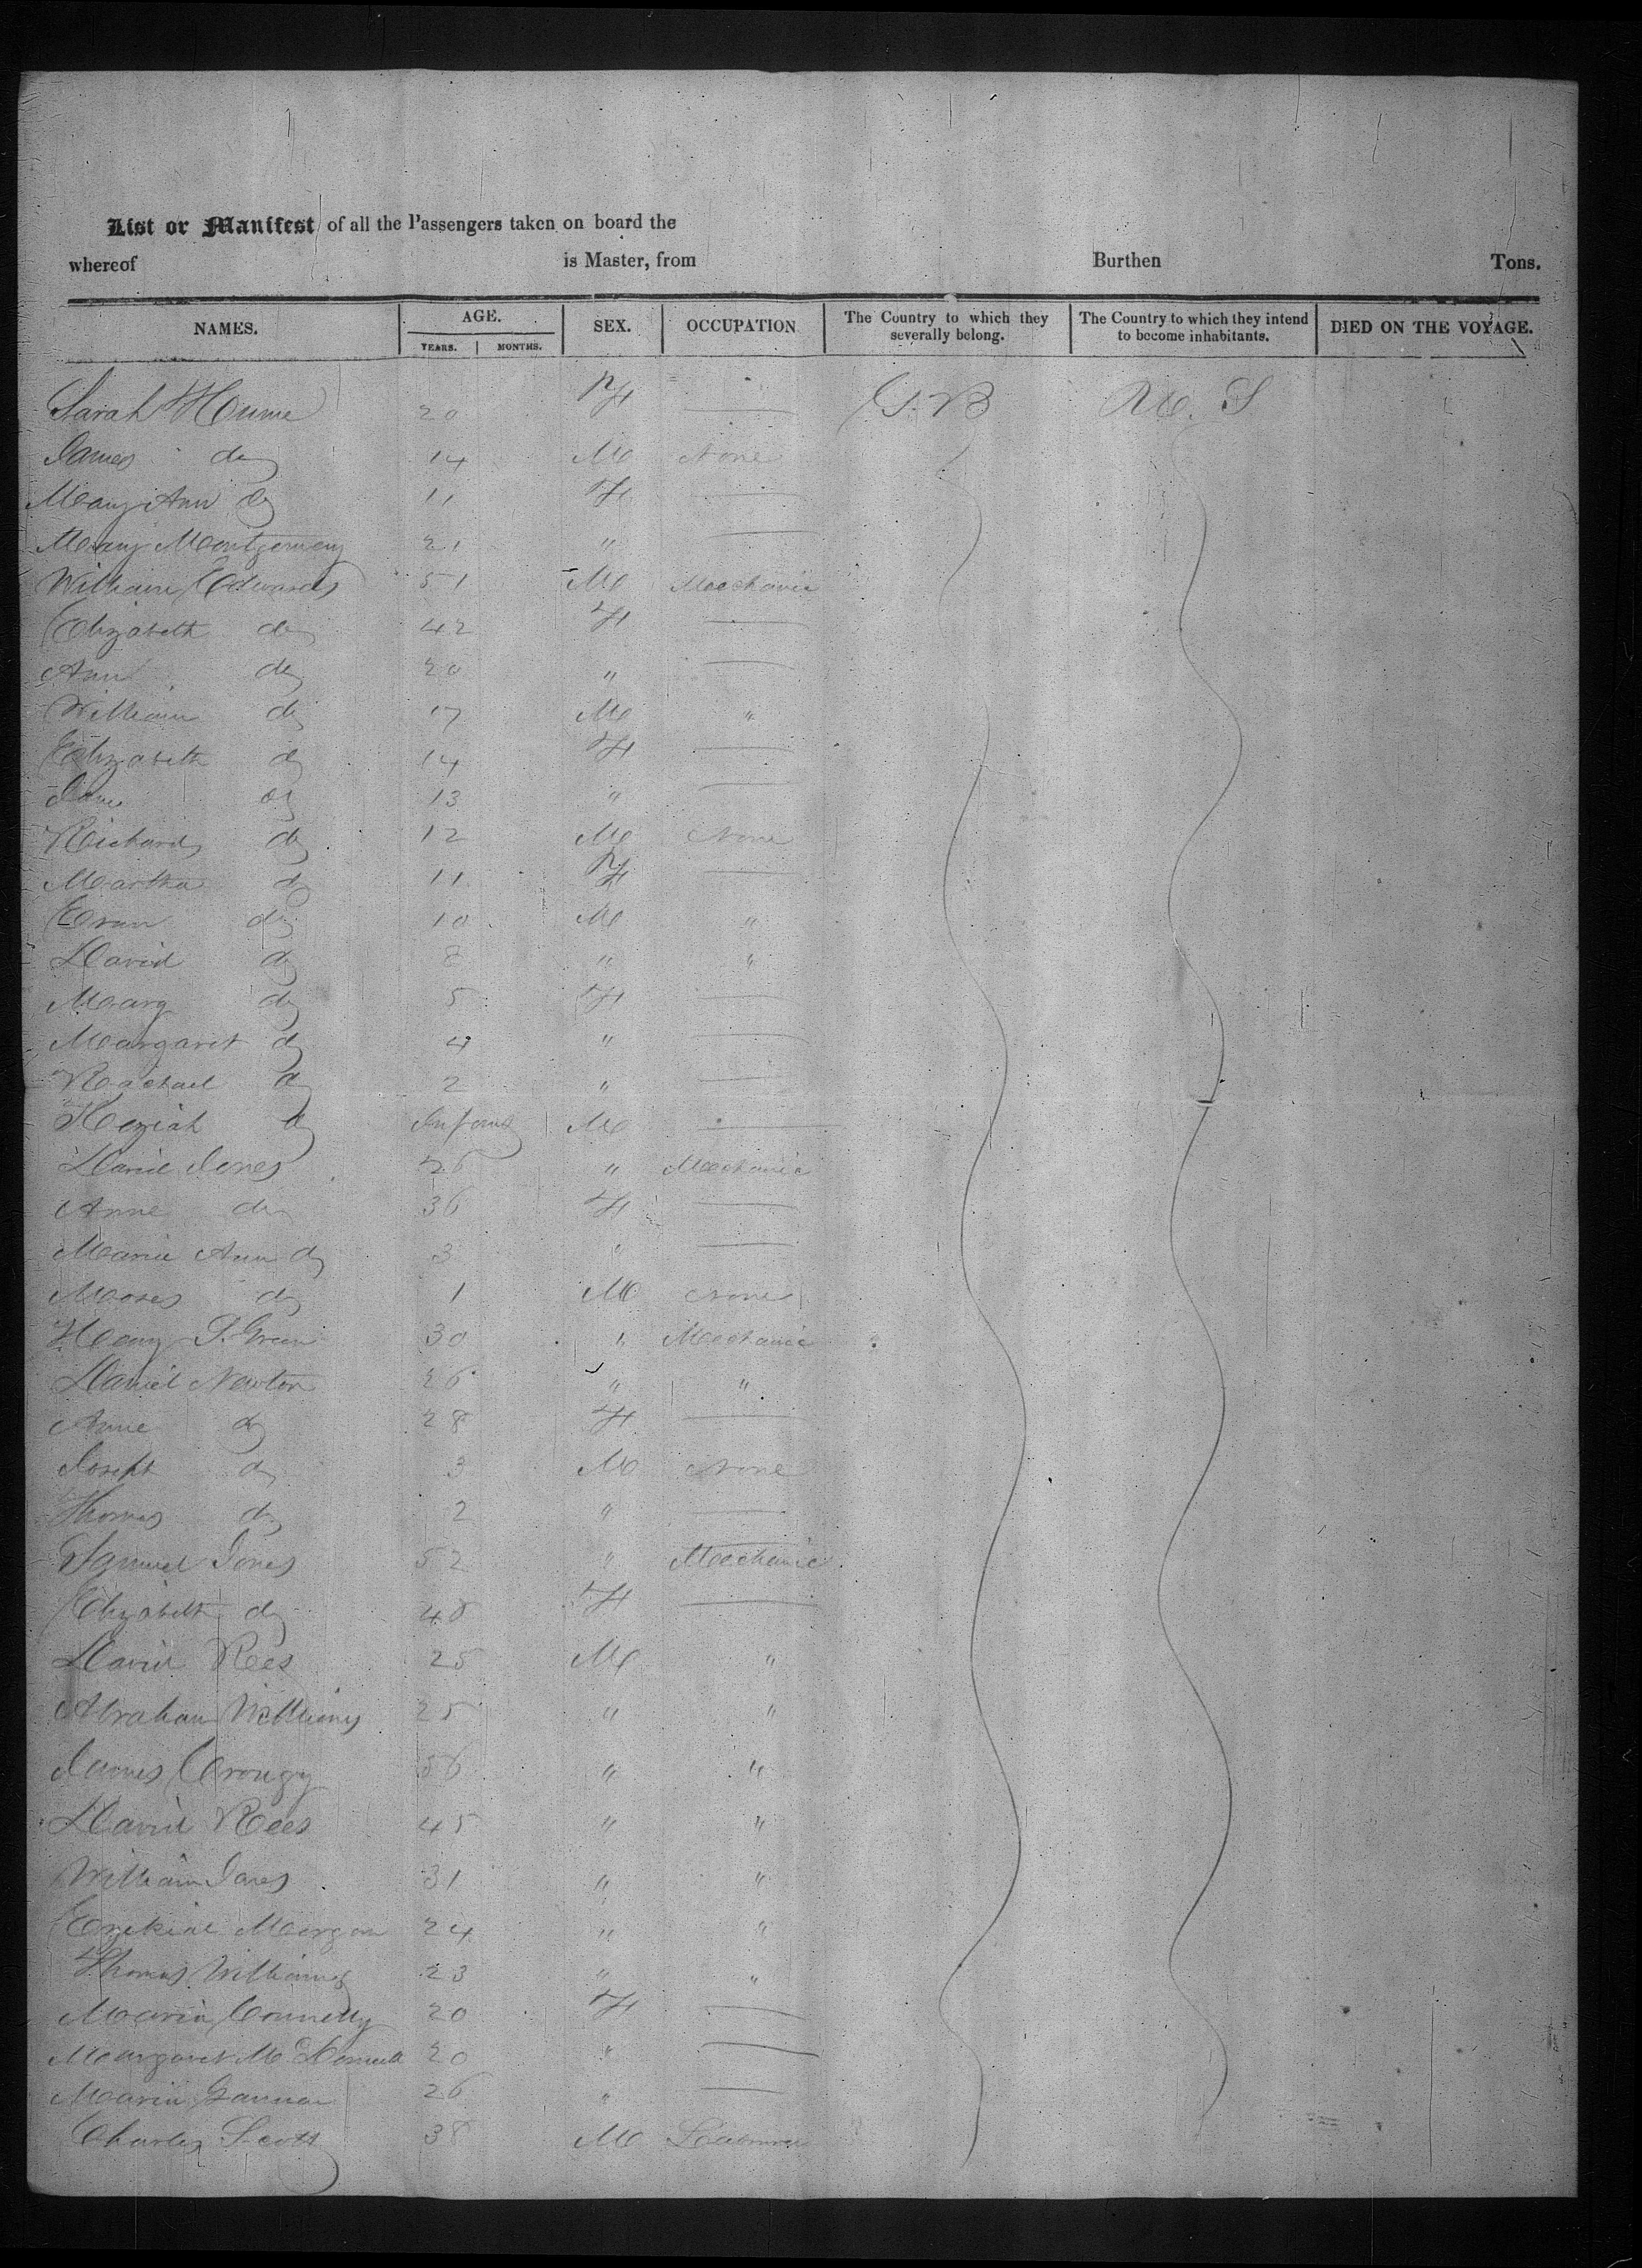 List or Manifest of all the Passengers taken on board the
whereof is Master, from Burthen Tons.
NAMES. AGE. YEARS. MONTHS. SEX. OCCUPATION The Country to which they severally belong. The Country to which they intend to become inhabitants. DIED ON THE VOYAGE.
Sarah Hume 20 F — G.B U. S
James do 14 M None
Mary Ann do 11 F —
Mary Montgomery 21 " —
William Edwards 51 M Mechanic
Elizabeth do 42 F —
Ann do 20 " —
William do 17 M "
Elizabeth do 14 F —
Jane do 13 " —
Richard do 12 M None
Martha do 11 F —
Evan do 10 M "
David do 8 " "
Mary do 5 F —
Margaret do 4 " —
Rachael do 2 " —
Keziah do Infant M —
David Jones 26 " Mechanic
Anne do 36 F —
Maria Ann do 3 " —
Moses do 1 M None
Henry S. Green 30 " Mechanic
Daniel Newton 26 " "
Anne do 28 F —
Joseph do 3 M None
Thomas do 2 " —
Samuel Jones 52 " Mechanic
Elizabeth do 48 F —
David Rees 25 M "
Abraham Williams 25 " "
James 56 " "
David Rees 45 " "
William Jones 31 " "
Ezekiel Morgan 24 " "
Thomas Williams 23 " "
Maria Connelly 20 F —
Margaret 20 " —
Maria Gannon 26 " —
Charles Scott 38 M Labourer